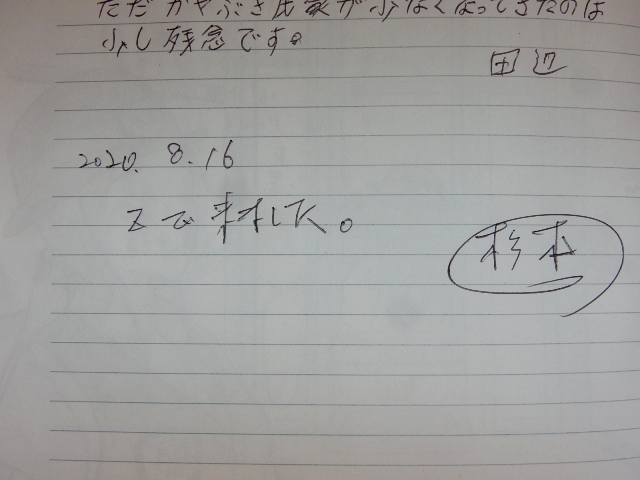 ただかやぶき民家が少なくなってきたのは
少し残念です。
田辺
2020. 8. 16
Zで来ました。
杉本